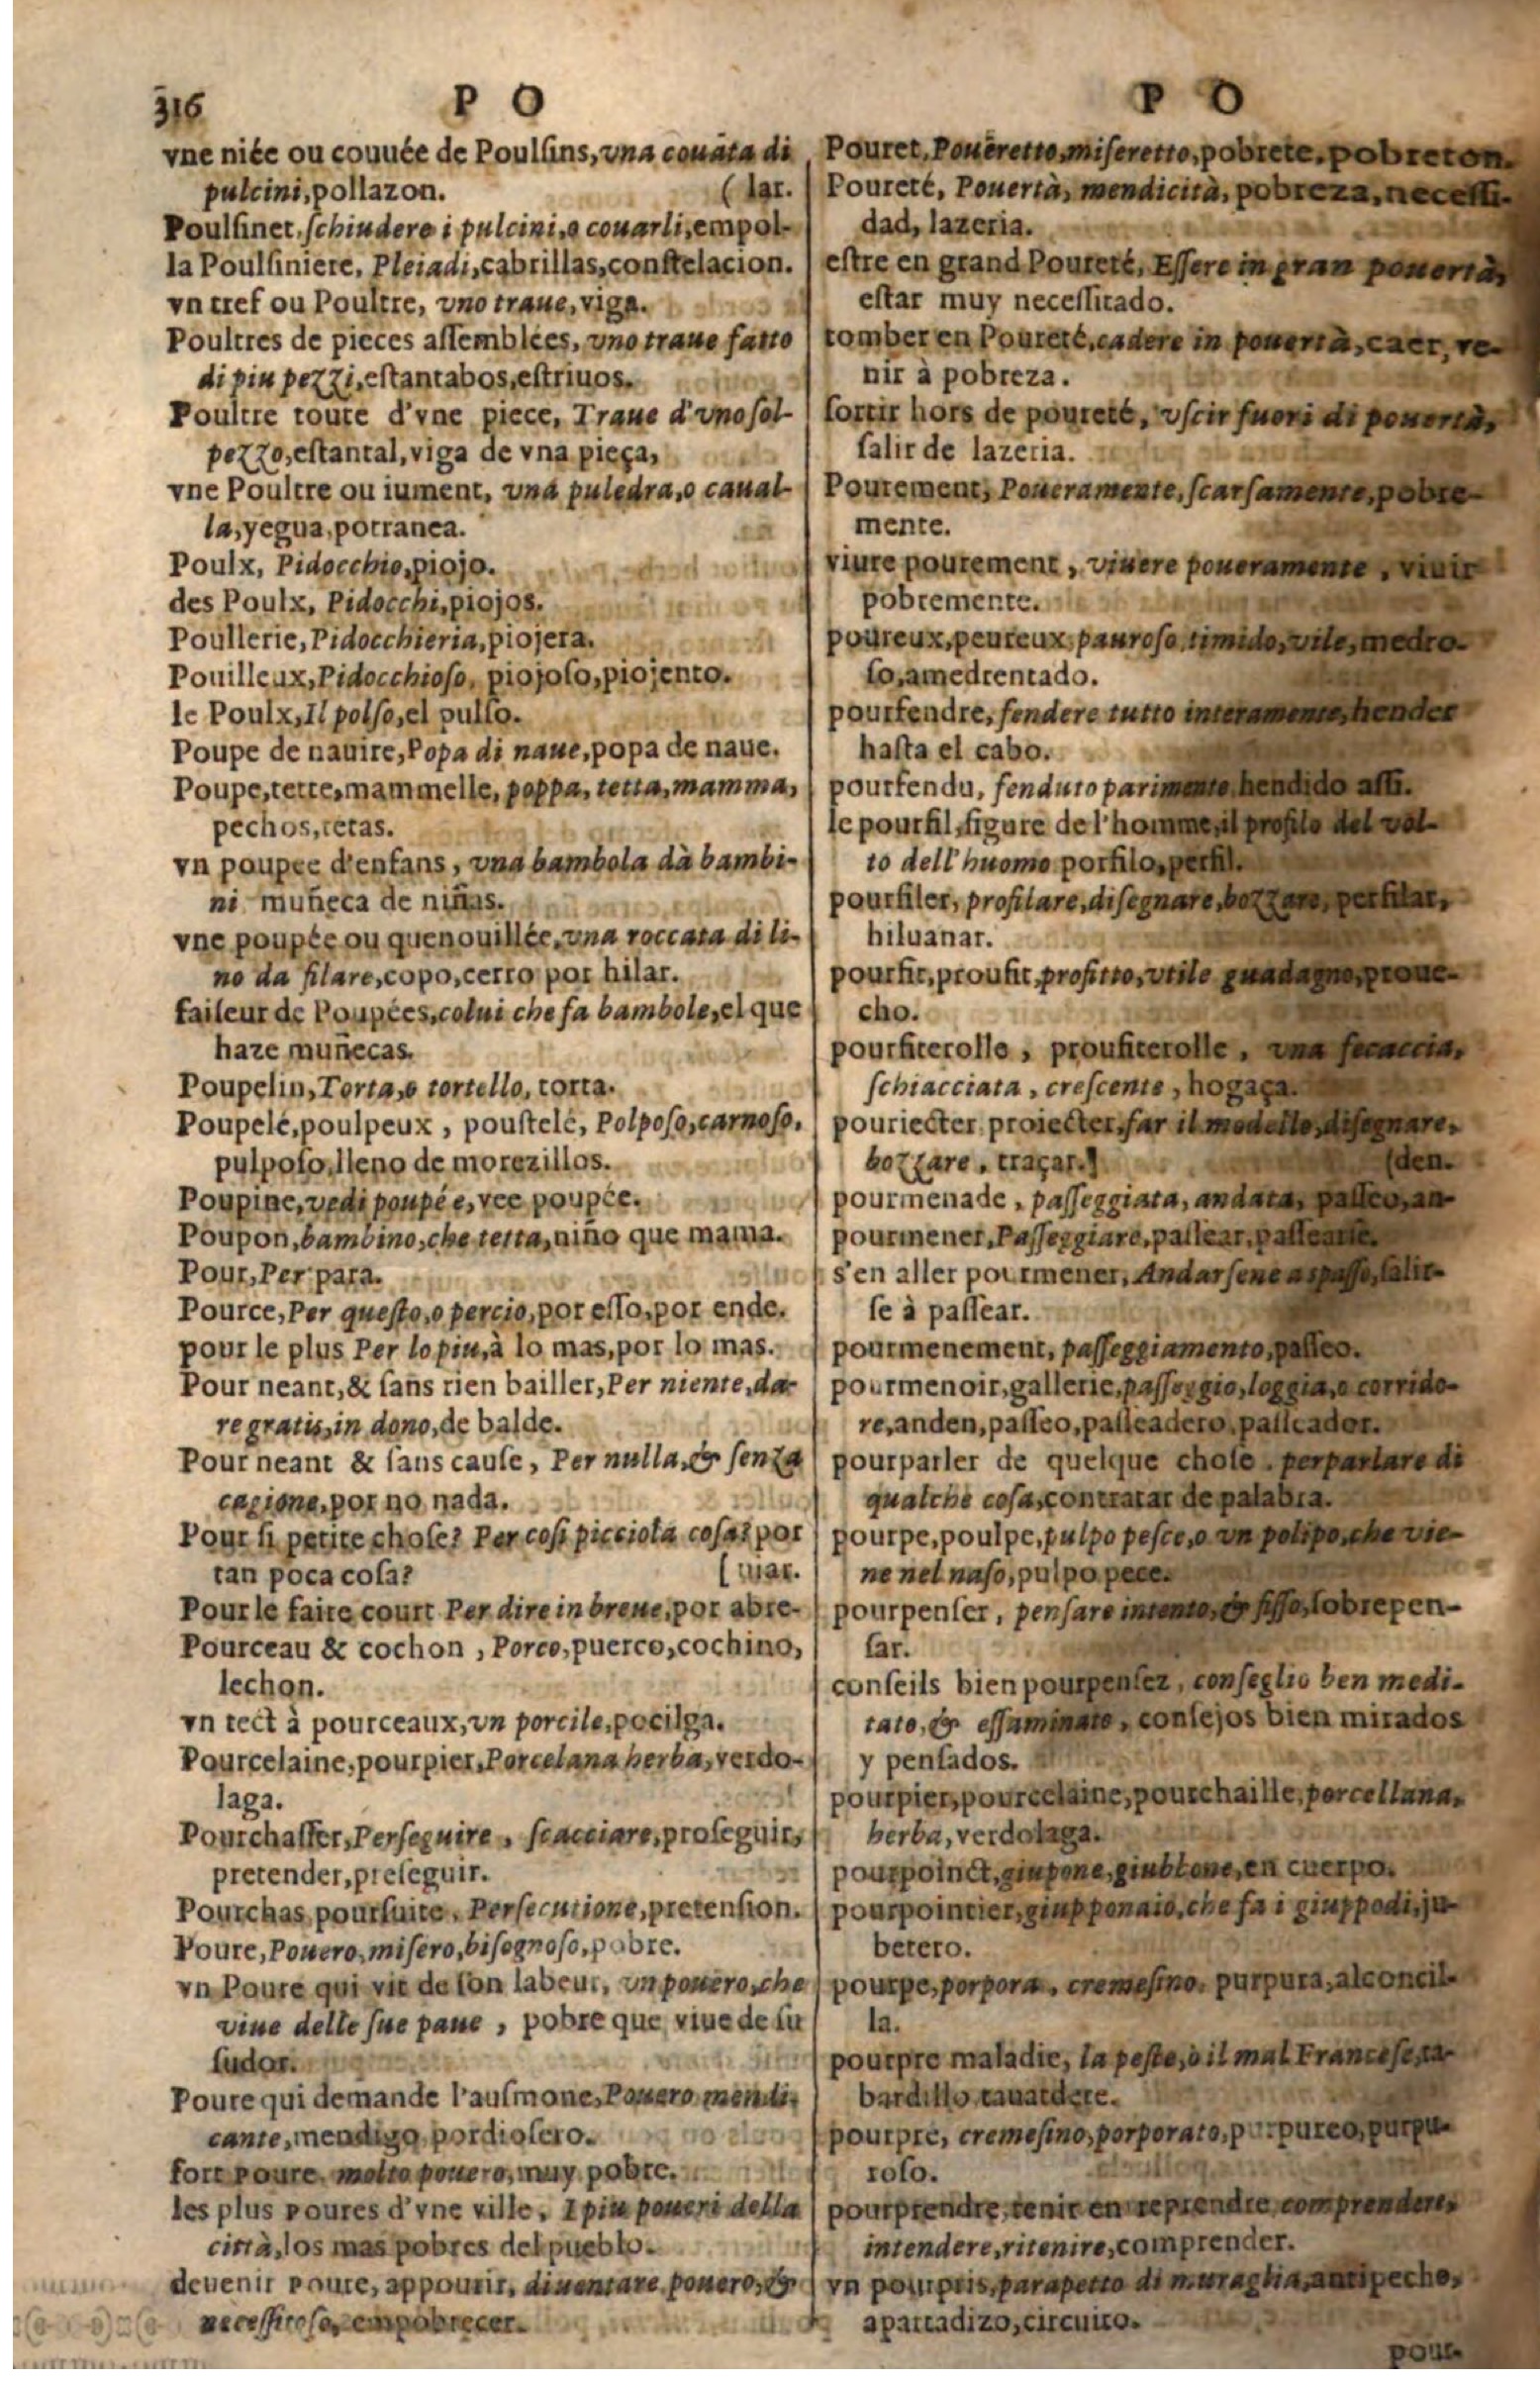 316
P O
vne niée ou couuée de Poulſins, vna couáta di
pulcini, pollazon. ( lar.
Poulſinet, ſchiudere i pulcini, o couarli, empol-
la Poulſiniere, Pleiadi, cabrillas, conſtelacion.
vn tref ou Poultre, vno traue, viga.
Poultres de pieces aſſemblées, vno traue fatto
di piu pezzi, eſtantabos, eſtriuos.
Poultre toute d'vne piece, Traue d'vno ſol-
pezzo, eſtantal, viga de vna pieça,
vne Poultre ou iument, vna puledra, o caual-
la, yegua, potranca.
Poulx, Pidocchio, piojo.
des Poulx, Pidocchi, piojos.
Poullerie, Pidocchieria, piojera.
Pouilleux, Pidocchioſo, piojoſo, piojento.
le Poulx, Il polſo, el pulſo.
Poupe de nauire, Popa di naue, popa de naue.
Poupe, tette, mammelle, poppa, tetta, mamma,
pechos, tetas.
vn poupee d'enfans, vna bambola dà bambi-
ni muñeca de niñas.
vne poupée ou quenouillée, vna roccata di li-
no da filare, copo, cerro por hilar.
faiſeur de Poupées, colui che fa bambole, el que
haze muñecas.
Poupelin, Torta, o tortello, torta.
Poupelé, poulpeux, pouſtelé, Polpoſo, carnoſo,
pulpoſo, lleno de morezillos.
Poupine, vedi poupée, vee poupée.
Poupon, bambino, che tetta, niño que mama.
Pour, Per para.
Pource, Per queſto, o percio, por eſſo, por ende.
pour le plus Per lo piu, à lo mas, por lo mas.
Pour neant, & ſans rien bailler, Per niente, da-
re gratis, in dono, de balde.
Pour neant & ſans cauſe, Per nulla, & ſenza
cagione, por no nada.
Pour ſi petite choſe? Per coſi picciola coſa? por
tan poca coſa? ( uiar.
Pour le faire court Per dire in breue, por abre-
Pourceau & cochon, Porco, puerco, cochino,
lechon.
vn tect à pourceaux, vn porcile, pocilga.
Pourcelaine, pourpier, Porcelana herba, verdo-
laga.
Pourchaſſer, Perſeguire, ſcacciare, proſeguir,
pretender, preſeguir.
Pourchas, pourſuite, Perſecutione, pretenſion.
Poure, Pouero, miſero, biſognoſo, pobre.
vn Poure qui vit de ſon labeur, vn pouero, che
viue delle ſue paue, pobre que viue de ſu
ſudor.
Poure qui demande l'auſmone, Pouero mendi-
cante, mendigo pordioſero.
fort Poure, molto pouero, muy pobre.
les plus Poures d'vne ville, I piu poueri della
città, los mas pobres del pueblo.
deuenir Poure, appourir, diuentare pouero, &
neceſſitoſo, empobrecer.
P O
Pouret, Poueretto, miſeretto, pobrete, pobreton.
Poureté, Pouertà, mendicità, pobreza, neceſſi-
dad, lazeria.
eſtre en grand Poureté, Eſſere in gran pouertà,
eſtar muy neceſſitado.
tomber en Poureté, cadere in pouertà, caer, ve-
nir à pobreza.
ſortir hors de poureté, vſcir fuori di pouertà,
ſalir de lazeria.
Pourement, Poueramente, ſcarſamente, pobre-
mente.
viure pourement, viuere poueramente, viuir
pobremente.
poureux, peureux, pauroſo, timido, vile, medro-
ſo, amedrentado.
pourfendre, fendere tutto interamente, hender
haſta el cabo.
pourfendu, fenduto parimente, hendido aſſi.
le pourfil, figure de l'homme, il profilo del vol-
to dell'huomo porfilo, perfil.
pourfiler, profilare, diſegnare, bozzare, perfilar,
hiluanar.
pourfit, proufit, profitto, vtile guadagno, proue-
cho.
pourfiterolle, proufiterolle, vna focaccia,
ſchiacciata, creſcente, hogaça.
pouriecter, proiecter, far il modello, diſegnare,
bozzare, traçar. (den.
pourmenade, paſſeggiata, andata, paſſeo, an-
pourmener, Paſſeggiare, paſſear, paſſearſe.
s'en aller pourmener, Andarſene a ſpaſſo, ſalir-
ſe à paſſear.
pourmenement, paſſeggiamento, paſſeo.
pourmenoir, gallerie, paſſeggio, loggia, o corrido-
re, anden, paſſeo, paſſeadero, paſſeador.
pourparler de quelque choſe, perparlare di
qualche coſa, contratar de palabra.
pourpe, poulpe, pulpo peſce, o vn polipo, che vie-
ne nel naſo, pulpo pece.
pourpenſer, penſare intento, & fiſſo, ſobrepen-
ſar.
conſeils bien pourpenſez, conſeglio ben medi-
tato, & eſſaminato, conſejos bien mirados
y penſados.
pourpier, pourcelaine, pourchaille, porcellana,
herba, verdolaga.
pourpoinct, giupone, giubbone, en cuerpo.
pourpointier, giupponaio, che fa i giuppodi, ju-
betero.
pourpe, porpora, cremeſino, purpura, alconcil-
la.
pourpre maladie, la peſte, ò il mal Franceſe, ta-
bardillo tauardete.
pourpre, cremeſino, porporato, purpureo, purpu-
roſo.
pourprendre, tenir en reprendre comprendere,
intendere, ritenire, comprender.
vn pourpris, parapetto di muraglia, antipecho,
apartadizo, circuito.
pour-